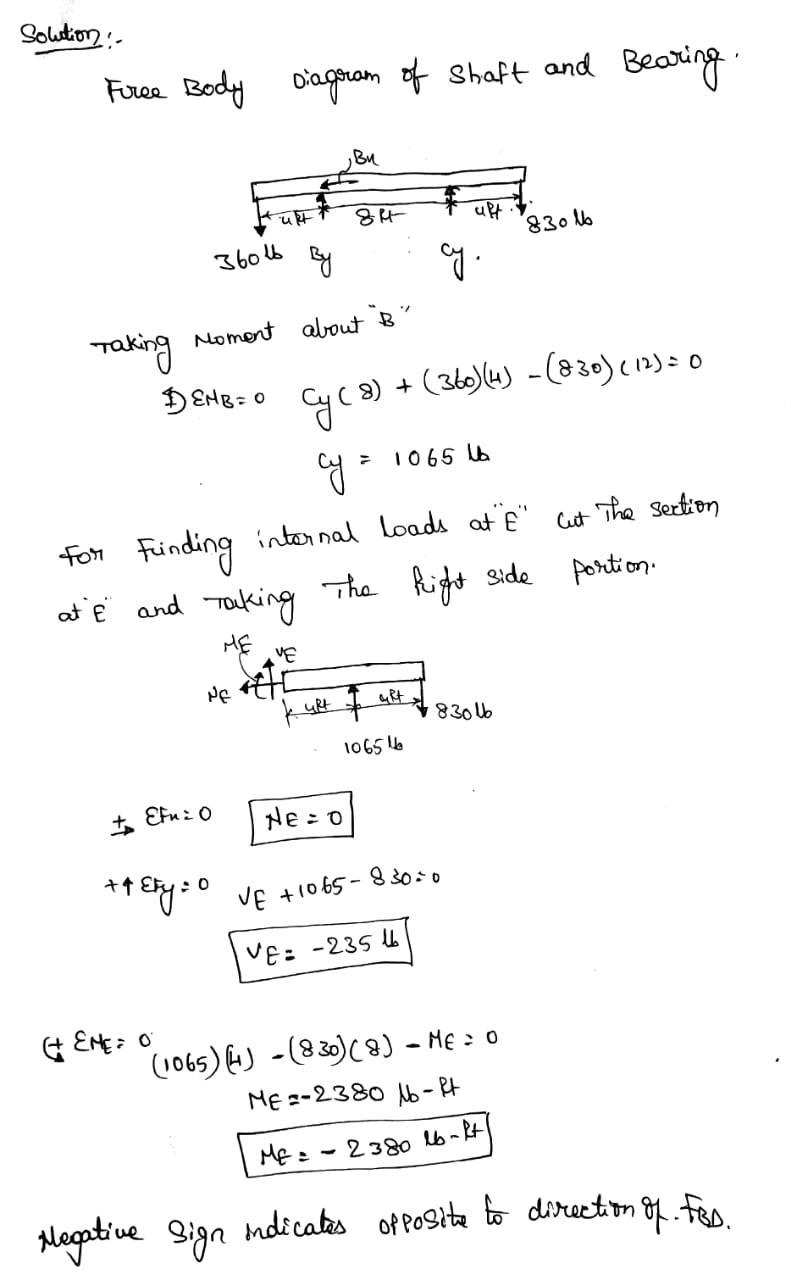 Solution :-
Free Body Diagram of Shaft and Bearing.
Bx
4ft 8ft 4ft
360 lb By Cy. 830 lb
Taking Moment about "B"
ΣMB=0 Cy(8) + (360)(4) - (830)(12) = 0
Cy = 1065 lb
For Finding internal loads at "E" Cut The section
at "E" and Taking The Right side portion.
ME VE
NE
4ft 4ft 830 lb
1065 lb
ΣFx=0 NE = 0
+↑ ΣFy=0 VE +1065-830=0
VE = -235 lb
ΣME=0 (1065)(4) - (830)(8) - ME = 0
ME =-2380 lb-ft
ME = - 2380 lb-ft
Negative Sign indicates opposite to direction of. FBD.